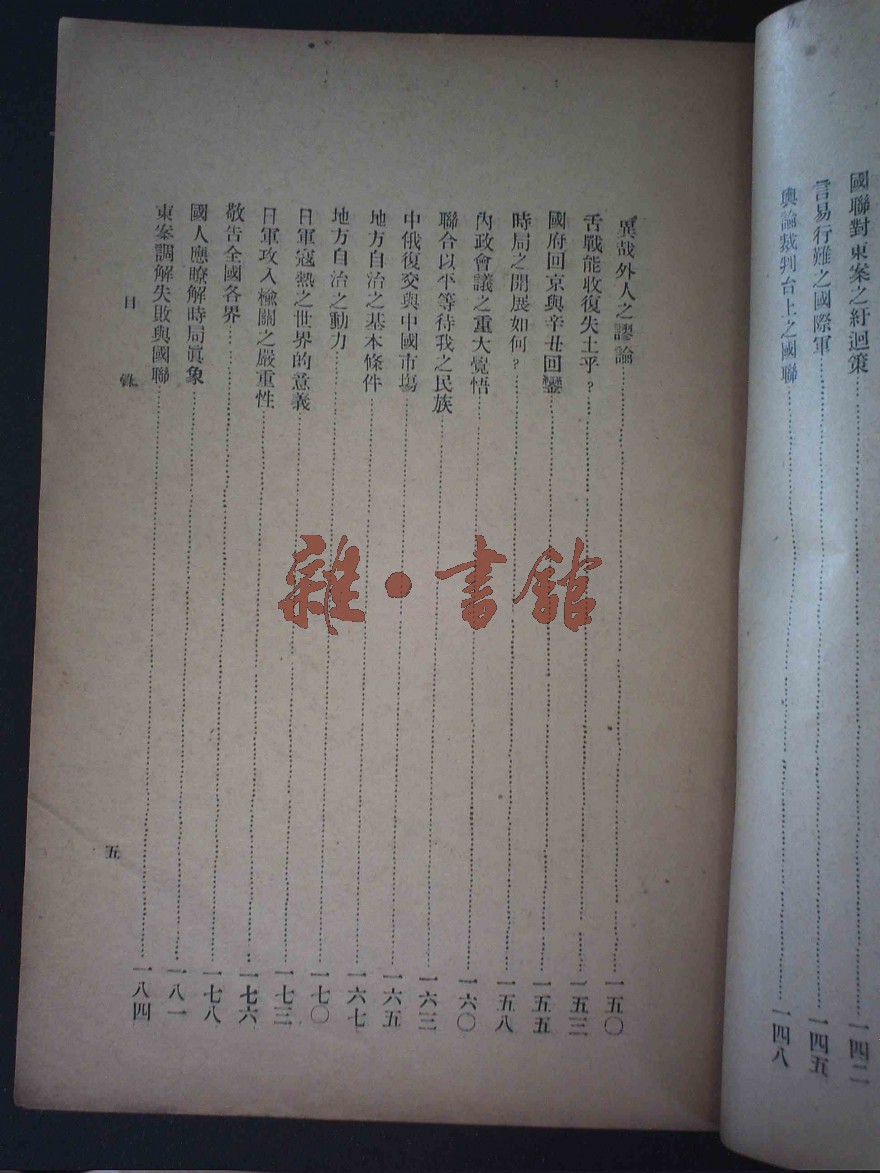 國聯對東案之紆迴策……一四二
言易行難之國際軍……一四五
輿論裁判台上之國聯……一四八
異哉外人之謬論……一五〇
舌戰能收復失土乎?……一五三
國府回京與辛丑回鑾……一五五
時局之開展如何?……一五八
內政會議之重大覺悟……一六〇
聯合以平等待我之民族……一六三
中俄復交與中國市塲……一六五
地方自治之基本條件……一六七
地方自治之動力……一七〇
日軍寇熱之世界的意義……一七三
日軍攻入楡關之嚴重性……一七六
敬告全國各界……一七八
國人應暸解時局眞象……一八一
東案調解失敗與國聯……一八四
目錄
五
雜·書館